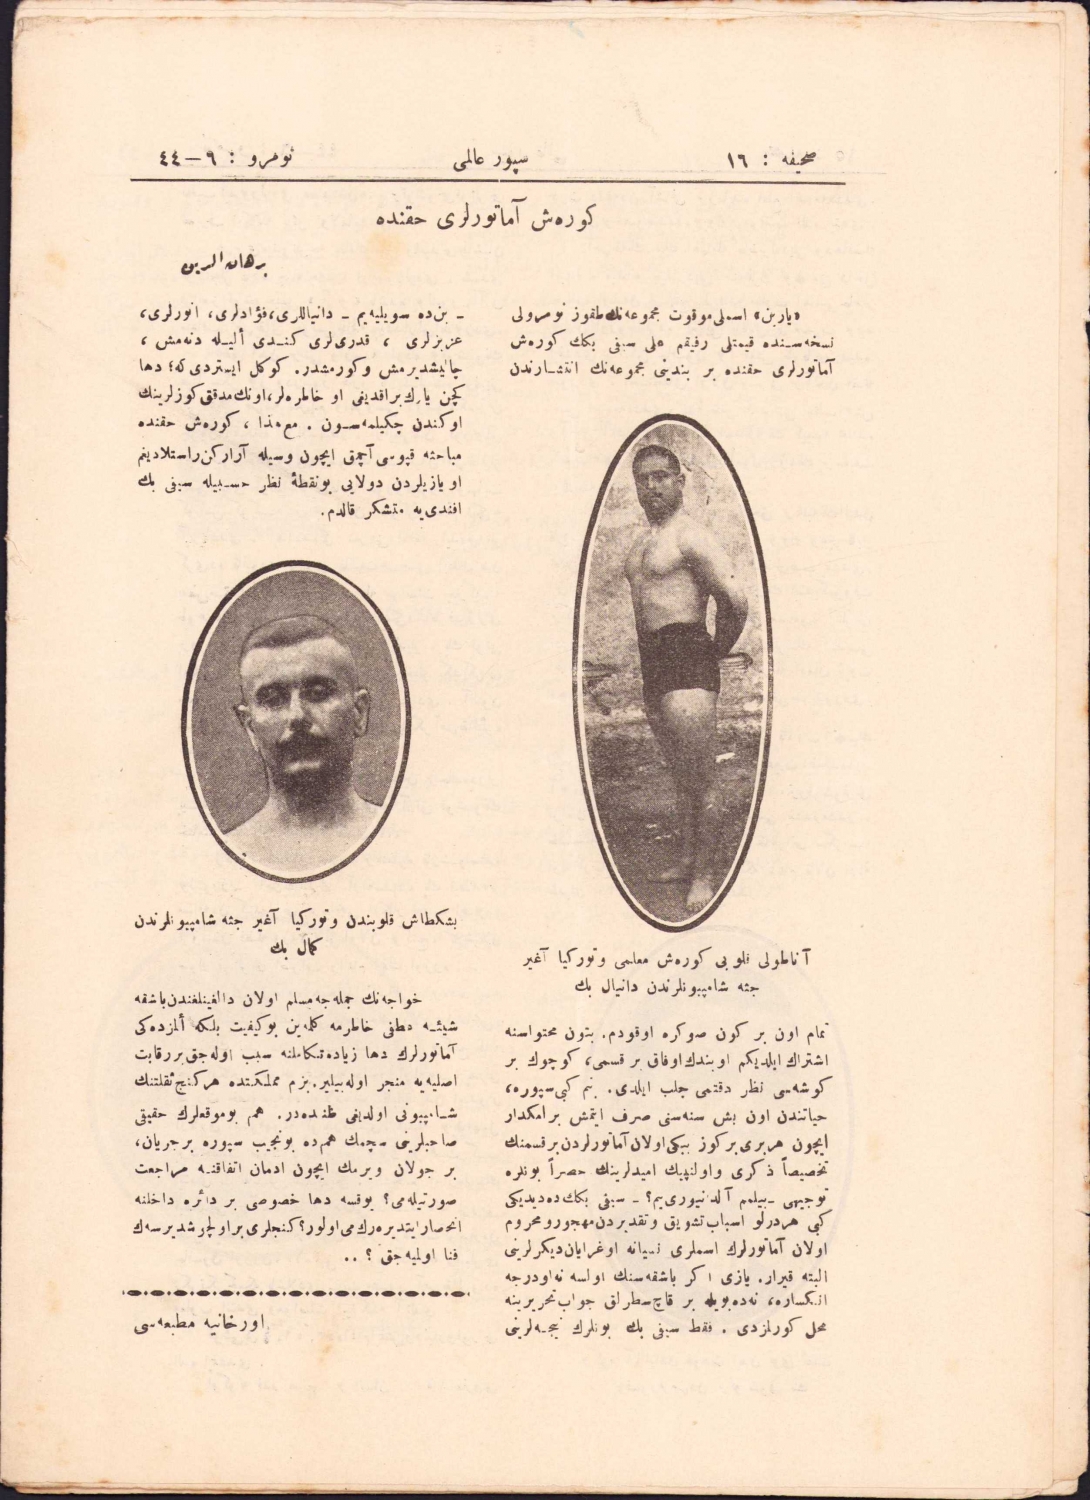 صحیفه : ١٦
سپور عالمی
نومرو : ٩ — ٤٤
كورەش آماتورلری حقنده
برهان الدین
«یارین» اسملی موقوت مجموعه‌نك طقوز نومرولی
نسخه‌سنده قیمتلی رفیقم علی سیفی بكك كورەش
آماتورلری حقنده بر بندینی مجموعه‌نك انتشارندن
آناطولی قلوبی كورەش معلمی وتوركیا آغیر
جثه شامپیونلرندن دانیال بك
تمام اون بر كون صوكره اوقودم. بتون محتواسنه
اشتراك ایلدیكم او بندك اوفاق بر قسمی، كوچوك بر
كوشه‌سی نظر دقتمی جلب ایلدی. بنم كبی سپوره،
حیاتندن اون بش سنه‌سنی صرف ایتمش بر امكدار
ایچون هر بری بر كوز ببكی اولان آماتورلردن بر قسمنك
تخصیصاً ذكری واولنپیك امیدلرینك حصراً بونلره
توجیهی ـ بیلمم آلدانیوری‌یم؟ ـ سیفی بكك ده دیدیكی
كبی هر درلو اسباب تشویق وتقدیردن مهجور و محروم
اولان آماتورلرك اسملری نسیانه اوغرایان دیكرلرینی
البته قیرار. یازی اكر باشقه‌سنك اولسه نه او درجه
انكساره، نه ده بویله بر قاچ سطرلق جواب تحریرینه
محل كورلزدی . فقط سیفی بك بونلرك نیجه‌لرینی
ـ بن ده سویلیه‌یم ـ دانیاللری، فؤادلری، انورلری،
عزیزلری ، قدریلری كندی ألیله دنه‌مش ،
چالیشدیرمش وكورمشدر. كوكل ایستردی كه؛ دها
كچن یازك براقدیغی او خاطره‌لر، اونك مدقق كوزلرینك
اوكندن چكیلمه‌سون . مع هذا ، كورەش حقنده
مباحثه قپوسی آچمق ایچون وسیله آراركن راستلادیغم
او یازیلردن دولایی بو نقطۀ نظر حسبیله سیفی بك
افندی‌یه متشكر قالدم.
بشكطاش قلوبندن وتوركیا آغیر جثه شامپیونلرندن
كمال بك
خواجه‌نك جمله‌جه مسلم اولان دالغینلغندن باشقه
شیئه عطفی خاطرمه كلمه‌ین بو كیفیت بلكه ألمزده‌كی
آماتورلرك دها زیاده تكاملنه سبب اوله‌جق بر رقابت
اصلیه‌یه منجر اوله‌بیلیر. بزم مملكتده هر كنج ثقلتنك
شامپیونی اولدیغی ظننده‌در. هم بو موقعلرك حقیقی
صاحبلرینی سچمك هم ده بو نجیب سپوره بر جریان،
بر جولان ویرمك ایچون ادمان اتفاقنه مراجعت
صورتیله‌می؟ یوقسه دها خصوصی بر دائره داخلنه
انحصار ایتدیره‌رك می اولور؟ كنجلری بر اولچر شدیرسه‌ك
فنا اولمیه‌جق ؟ ..
اورخانیه مطبعه‌سی